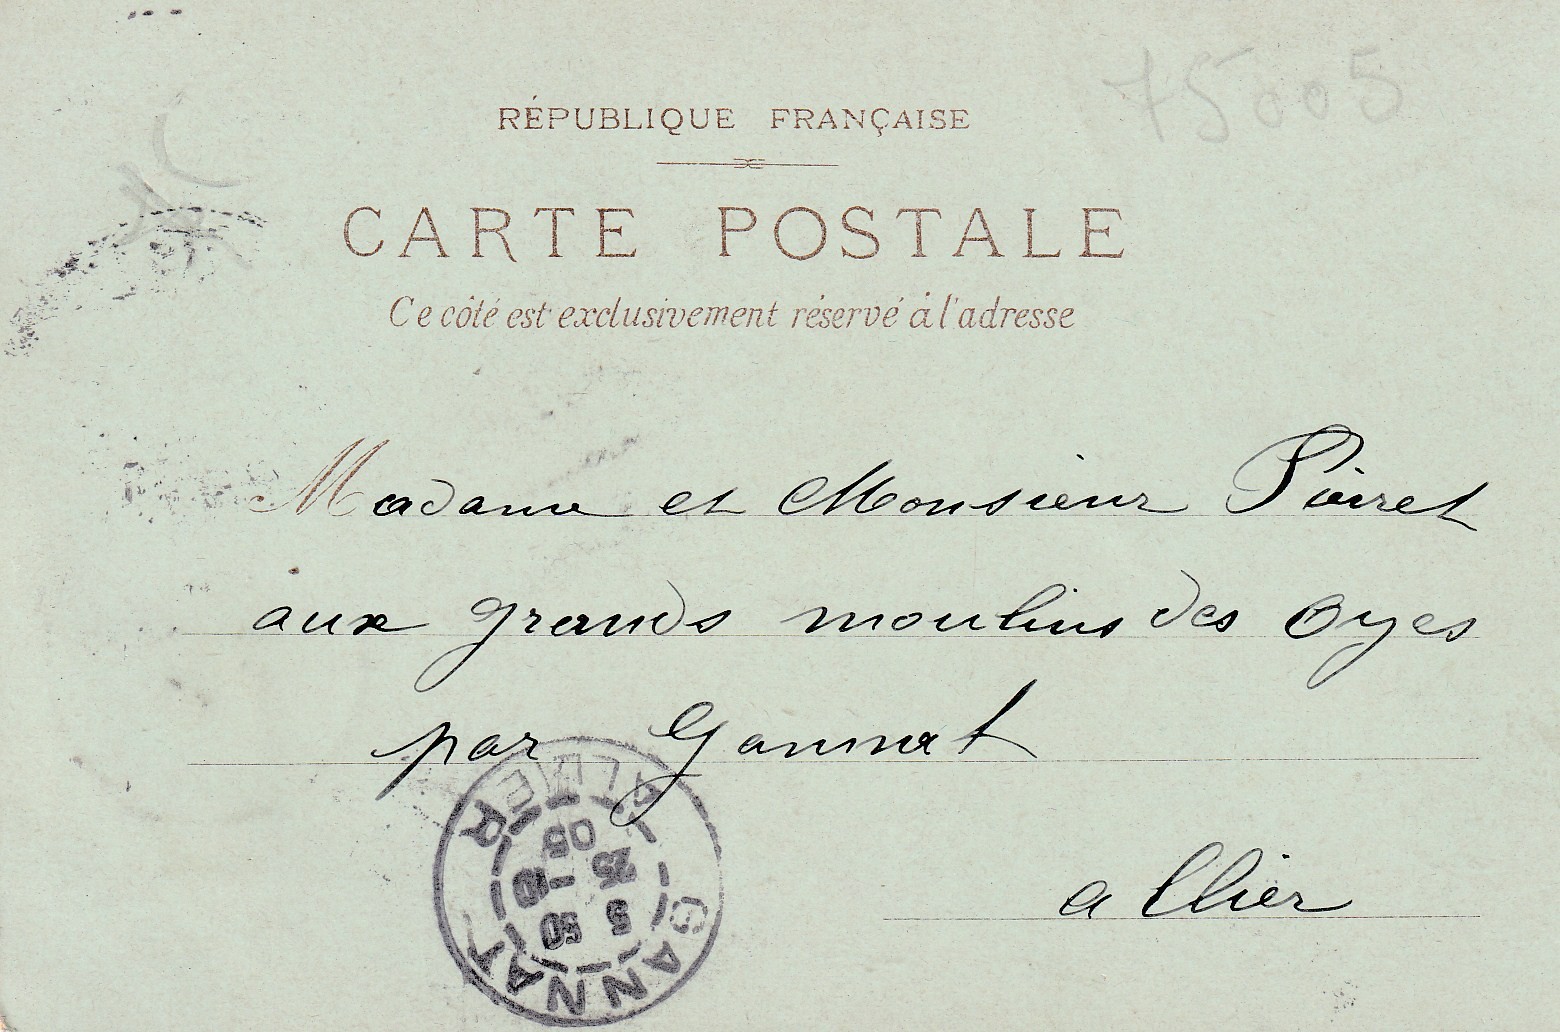 75005
RÉPUBLIQUE FRANÇAISE
CARTE POSTALE
Ce côté est exclusivement réservé à l'adresse
Madame et Monsieur Poiret
aux grands moulins des Oyes
par Gannat
allier
GANNAT
ALLIER
5 50
25 - 10
05